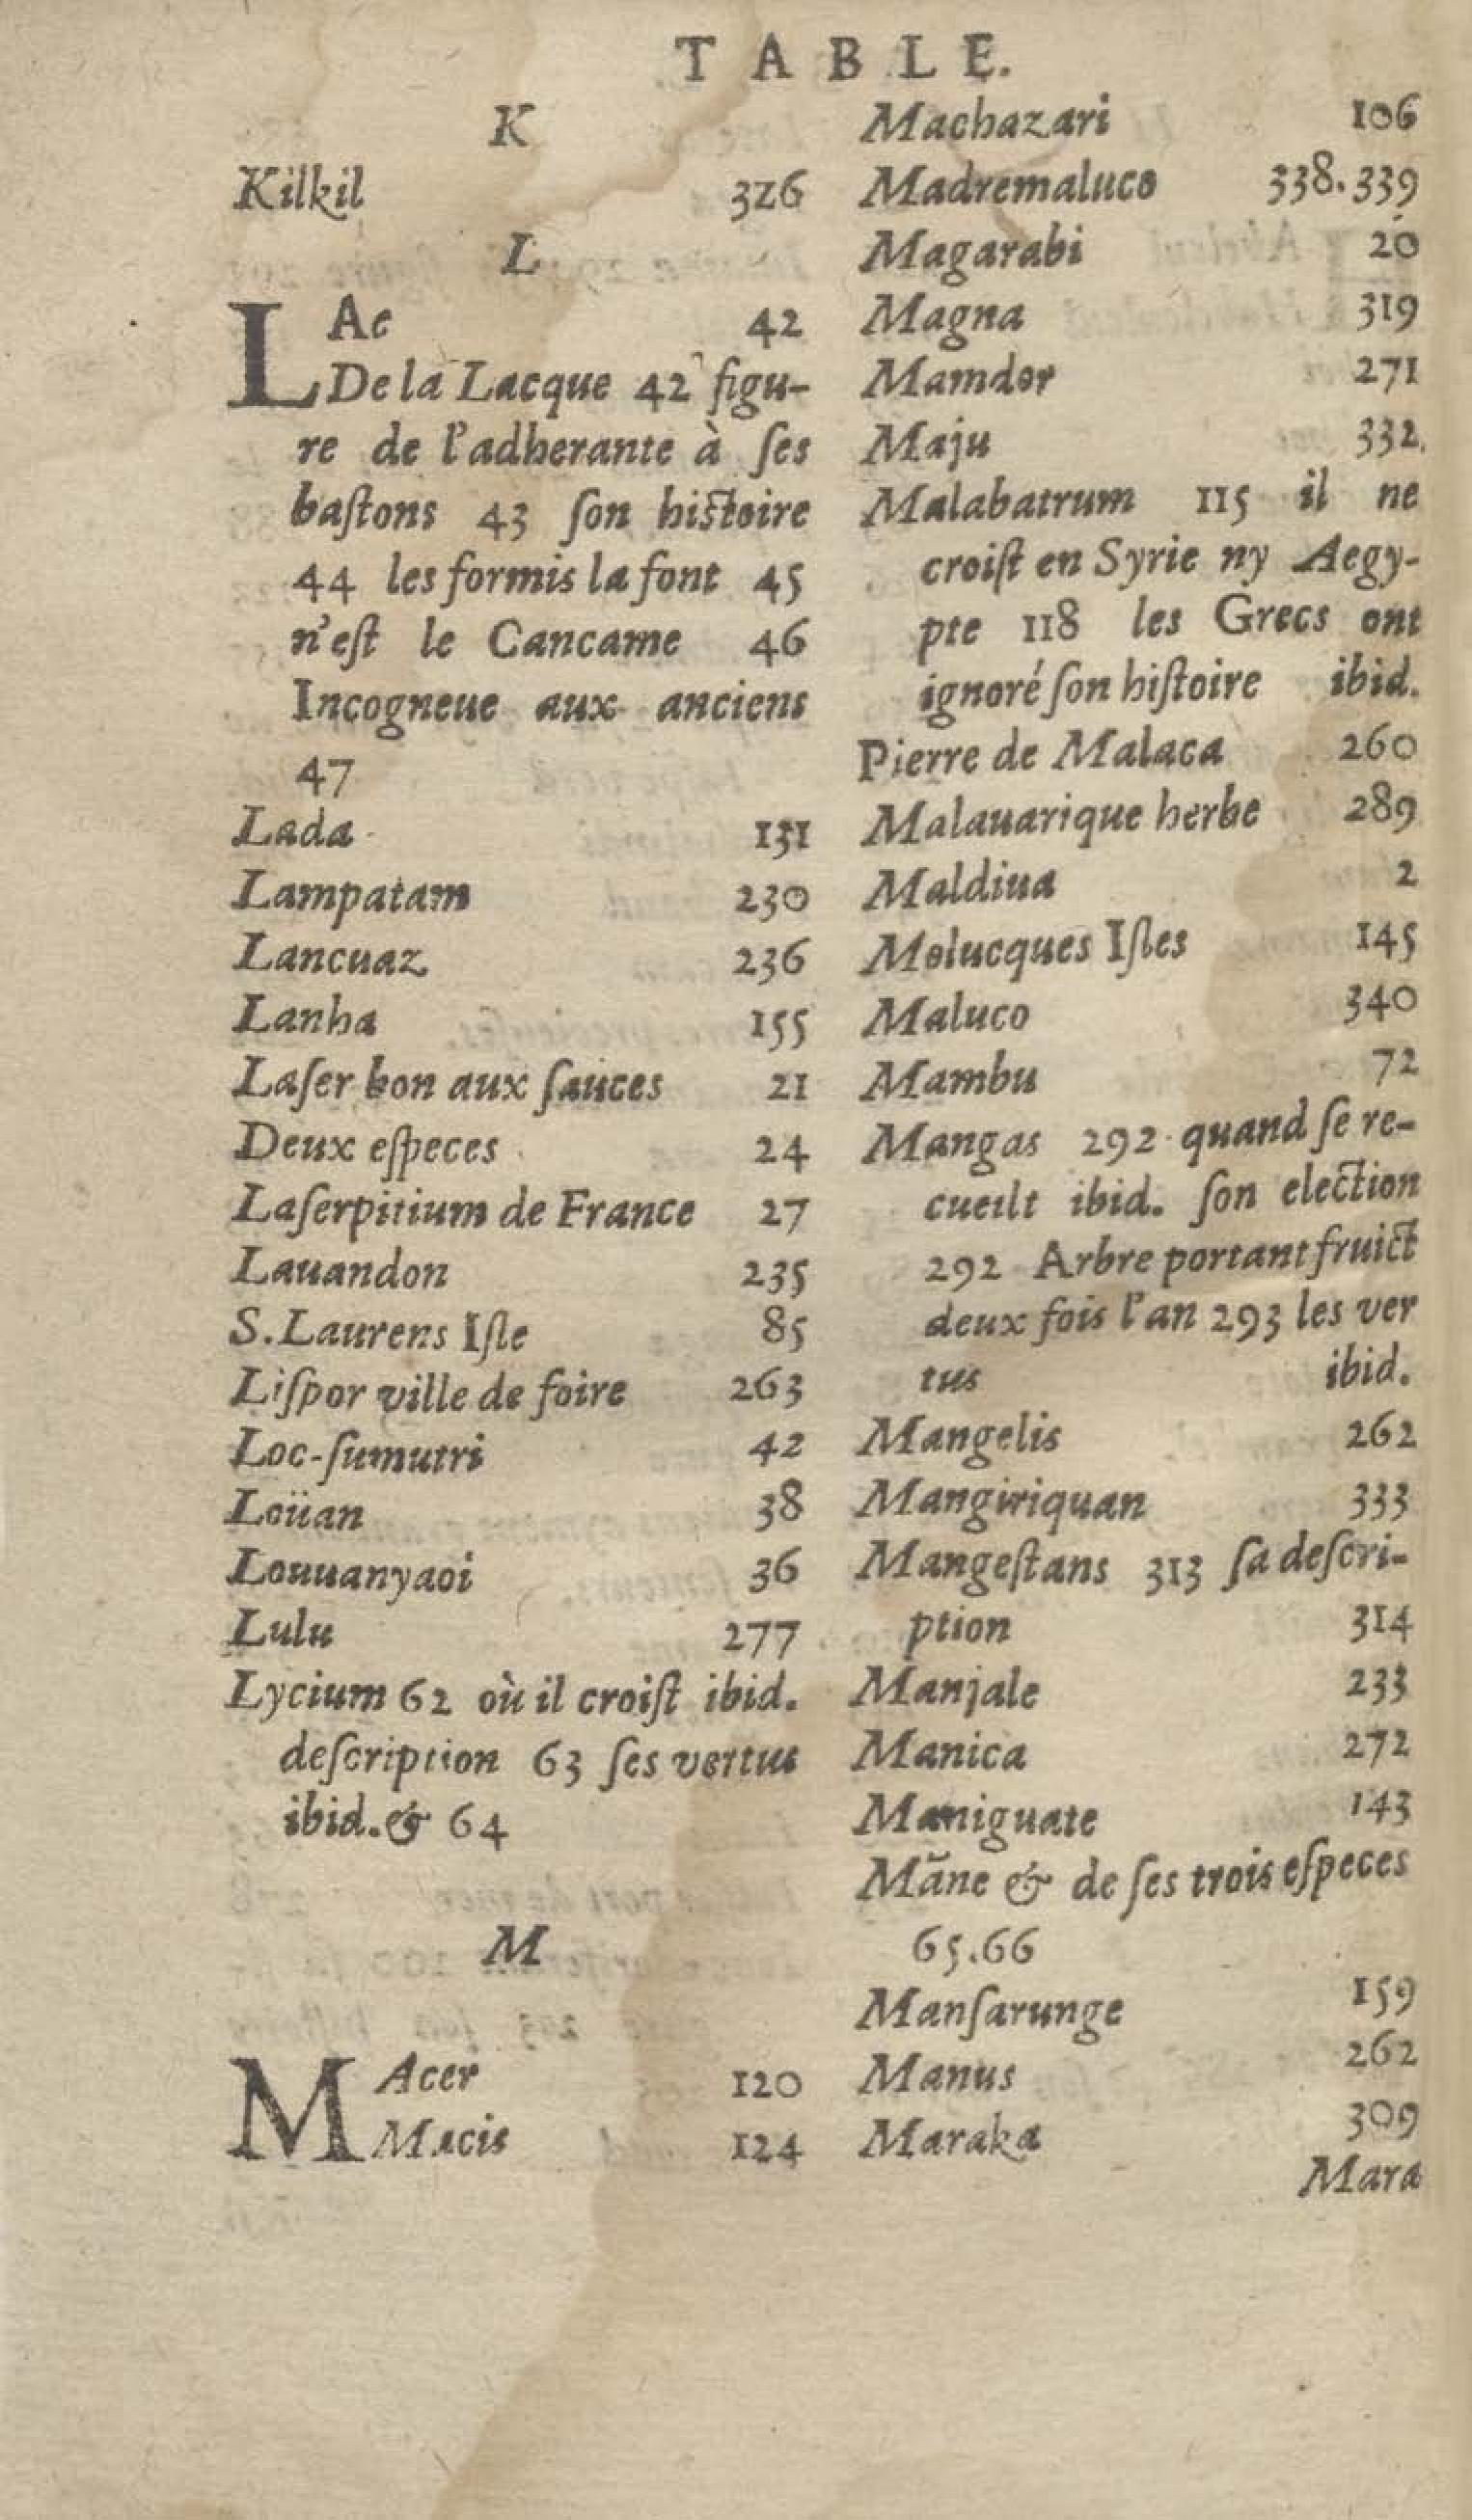 TABLE.
K
Kilkil 326
L
LAc 42
De la Lacque 42 figu-
re de l'adherante à ſes
baſtons 43 ſon histoire
44 les formis la font 45
n'eſt le Cancame 46
Incogneue aux anciens
47
Lada 131
Lampatam 230
Lancuaz 236
Lanha 155
Laſer bon aux ſauces 21
Deux eſpeces 24
Laſerpitium de France 27
Lauandon 235
S. Laurens Iſle 85
Liſpor ville de foire 263
Loc-ſumutri 42
Loüan 38
Louuanyaoi 36
Lulu 277
Lycium 62 où il croiſt ibid.
deſcription 63 ſes vertus
ibid. & 64
M
MAcer 120
Macis 124
Machazari 106
Madremaluco 338.339
Magarabi 20
Magna 319
Mamdor 271
Maju 332.
Malabatrum 115 il ne
croiſt en Syrie ny Aegy-
pte 118 les Grecs ont
ignoré ſon hiſtoire ibid.
Pierre de Malaca 260
Malauarique herbe 289
Maldiua 2
Molucques Iſles 145
Maluco 340
Mambu 72
Mangas 292 quand ſe re-
cueilt ibid. ſon election
292 Arbre portant fruict
deux fois l'an 293 les ver
tus ibid.
Mangelis 262
Mangiriquan 333
Mangeſtans 313 ſa deſcri-
ption 314
Manjale 233
Manica 272
Maniguate 143
Māne & de ſes trois eſpeces
65.66
Manſarunge 159
Manus 262
Maraka 309
Mara